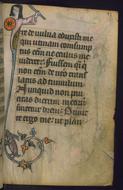 re de uulua eduxisti me
qui utinam consump
tus eēm ne oculus me
uideret. fuissem q̄si
non eēm de utero trans
latus ad tumulum
Nunquid non pau
citas dierum meorū
finietur breui. Dimit
te ergo me ut plan